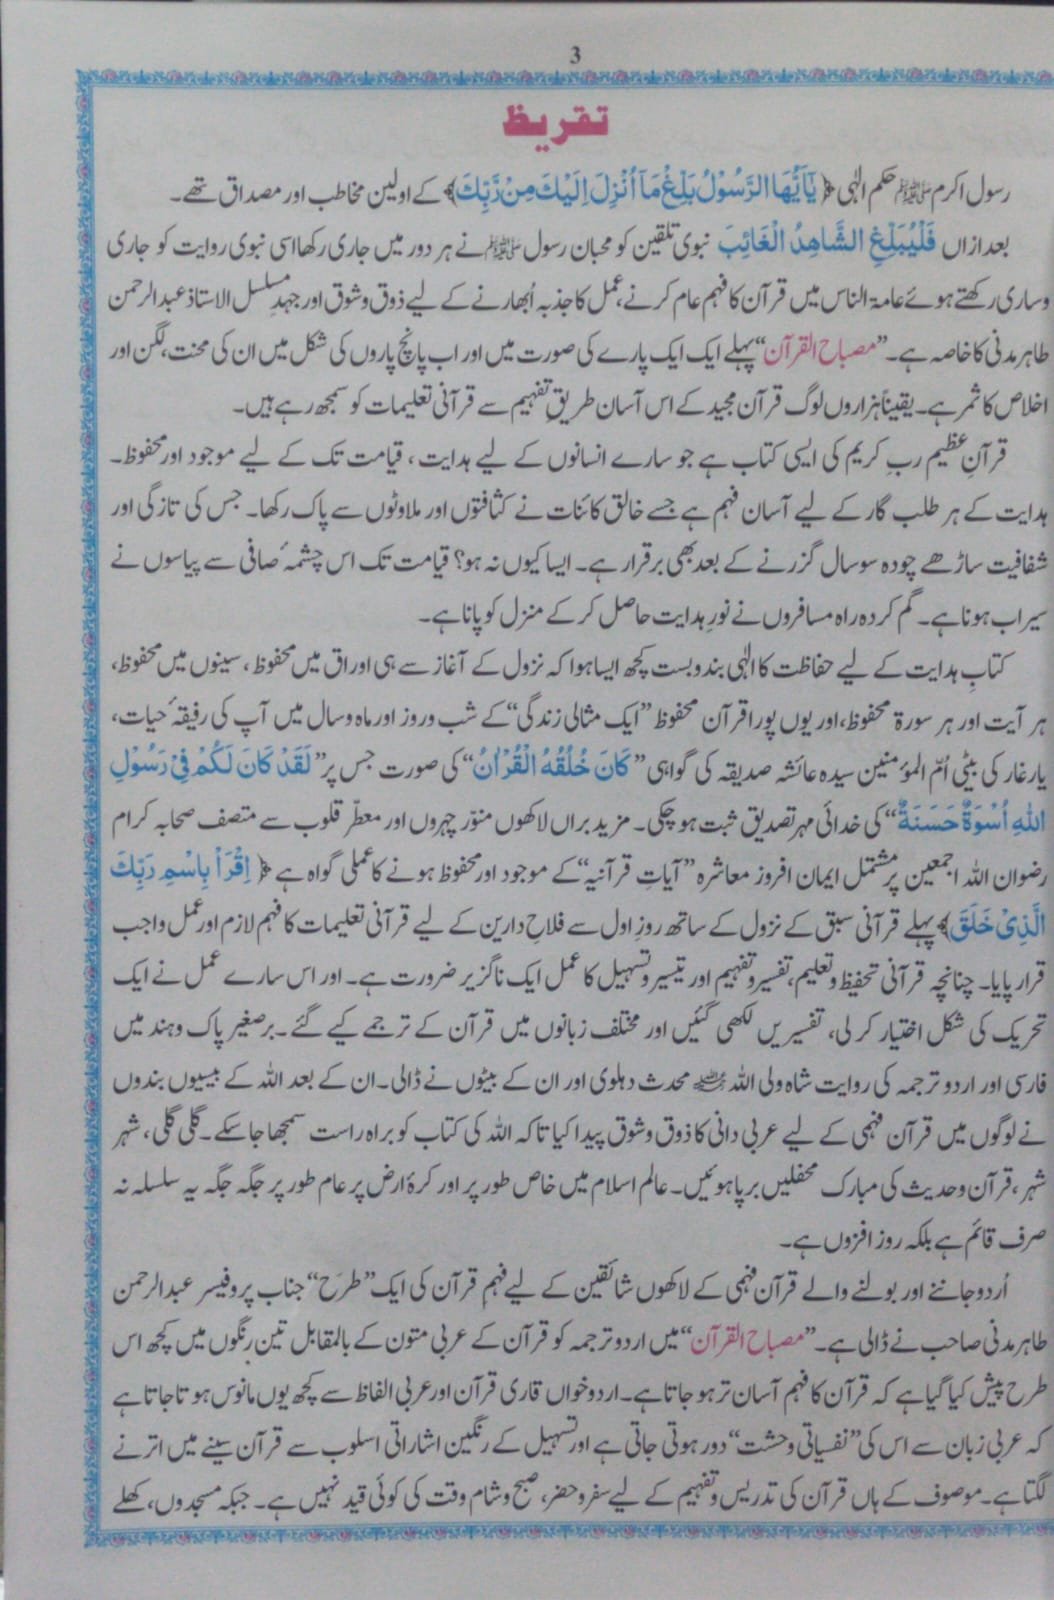 3
تقریظ
رسول اکرم ﷺ حکم الٰہی ﴿یٰۤاَیُّهَا الرَّسُوْلُ بَلِّغْ مَاۤ اُنْزِلَ اِلَیْكَ مِنْ رَّبِّكَ﴾ کے اولین مخاطب اور مصداق تھے۔
بعد ازاں فَلْیُبَلِّغِ الشَّاهِدُ الْغَائِبَ نبوی تلقین کو محبان رسول ﷺ نے ہر دور میں جاری رکھا اسی نبوی روایت کو جاری
و ساری رکھتے ہوئے عامۃ الناس میں قرآن کا فہم عام کرنے، عمل کا جذبہ اُبھارنے کے لیے ذوق و شوق اور جہدِ مسلسل الاستاذ عبدالرحمن
طاہر مدنی کا خاصہ ہے۔ ”مصباح القرآن“ پہلے ایک ایک پارے کی صورت میں اور اب پانچ پاروں کی شکل میں ان کی محنت، لگن اور
اخلاص کا ثمر ہے۔ یقیناً ہزاروں لوگ قرآن مجید کے اس آسان طریقِ تفہیم سے قرآنی تعلیمات کو سمجھ رہے ہیں۔
قرآنِ عظیم ربِ کریم کی ایسی کتاب ہے جو سارے انسانوں کے لیے ہدایت، قیامت تک کے لیے موجود اور محفوظ۔
ہدایت کے ہر طلب گار کے لیے آسان فہم ہے جسے خالق کائنات نے کثافتوں اور ملاوٹوں سے پاک رکھا۔ جس کی تازگی اور
شفافیت ساڑھے چودہ سو سال گزرنے کے بعد بھی برقرار ہے۔ ایسا کیوں نہ ہو؟ قیامت تک اس چشمۂ صافی سے پیاسوں نے
سیراب ہونا ہے۔ گم کردہ راہ مسافروں نے نورِ ہدایت حاصل کر کے منزل کو پانا ہے۔
کتابِ ہدایت کے لیے حفاظت کا الٰہی بندوبست کچھ ایسا ہوا کہ نزول کے آغاز سے ہی اوراق میں محفوظ، سینوں میں محفوظ،
ہر آیت اور ہر سورۃ محفوظ، اور یوں پورا قرآن محفوظ ”ایک مثالی زندگی“ کے شب و روز اور ماہ و سال میں آپ کی رفیقۂ حیات،
یارِ غار کی بیٹی اُمّ المؤمنین سیدہ عائشہ صدیقہ کی گواہی ”كَانَ خُلُقُهُ الْقُرْاٰنُ“ کی صورت جس پر ”لَقَدْ كَانَ لَكُمْ فِیْ رَسُوْلِ
اللّٰهِ اُسْوَةٌ حَسَنَةٌ“ کی خدائی مہر تصدیق ثبت ہو چکی۔ مزید براں لاکھوں منوّر چہروں اور معطّر قلوب سے متصف صحابہ کرام
رضوان اللہ اجمعین پر مشتمل ایمان افروز معاشرہ ”آیاتِ قرآنیہ“ کے موجود اور محفوظ ہونے کا عملی گواہ ہے ﴿ اِقْرَاْ بِاسْمِ رَبِّكَ
الَّذِیْ خَلَقَ﴾ پہلے قرآنی سبق کے نزول کے ساتھ روزِ اول سے فلاحِ دارین کے لیے قرآنی تعلیمات کا فہم لازم اور عمل واجب
قرار پایا۔ چنانچہ قرآنی تحفیظ و تعلیم، تفسیر و تفہیم اور تیسیر و تسہیل کا عمل ایک ناگزیر ضرورت ہے۔ اور اس سارے عمل نے ایک
تحریک کی شکل اختیار کر لی، تفسیریں لکھی گئیں اور مختلف زبانوں میں قرآن کے ترجمے کیے گئے۔ برصغیر پاک و ہند میں
فارسی اور اردو ترجمہ کی روایت شاہ ولی اللہ رحمہ اللہ محدث دہلوی اور ان کے بیٹوں نے ڈالی۔ ان کے بعد اللہ کے بیسیوں بندوں
نے لوگوں میں قرآن فہمی کے لیے عربی دانی کا ذوق و شوق پیدا کیا تاکہ اللہ کی کتاب کو براہ راست سمجھا جا سکے۔ گلی گلی، شہر
شہر، قرآن و حدیث کی مبارک محفلیں برپا ہوئیں۔ عالم اسلام میں خاص طور پر اور کرۂ ارض پر عام طور پر جگہ جگہ یہ سلسلہ نہ
صرف قائم ہے بلکہ روز افزوں ہے۔
اُردو جاننے اور بولنے والے قرآن فہمی کے لاکھوں شائقین کے لیے فہمِ قرآن کی ایک ”طرح“ جناب پروفیسر عبدالرحمن
طاہر مدنی صاحب نے ڈالی ہے۔ ”مصباح القرآن“ میں اردو ترجمہ کو قرآن کے عربی متون کے بالمقابل تین رنگوں میں کچھ اس
طرح پیش کیا گیا ہے کہ قرآن کا فہم آسان تر ہو جاتا ہے۔ اردو خواں قاری قرآن اور عربی الفاظ سے کچھ یوں مانوس ہوتا جاتا ہے
کہ عربی زبان سے اس کی ”نفسیاتی وحشت“ دور ہوتی جاتی ہے اور تسہیل کے رنگین اشاراتی اسلوب سے قرآن سینے میں اترنے
لگتا ہے۔ موصوف کے ہاں قرآن کی تدریس و تفہیم کے لیے سفر و حضر، صبح و شام وقت کی کوئی قید نہیں ہے۔ جبکہ مسجدوں، کھلے